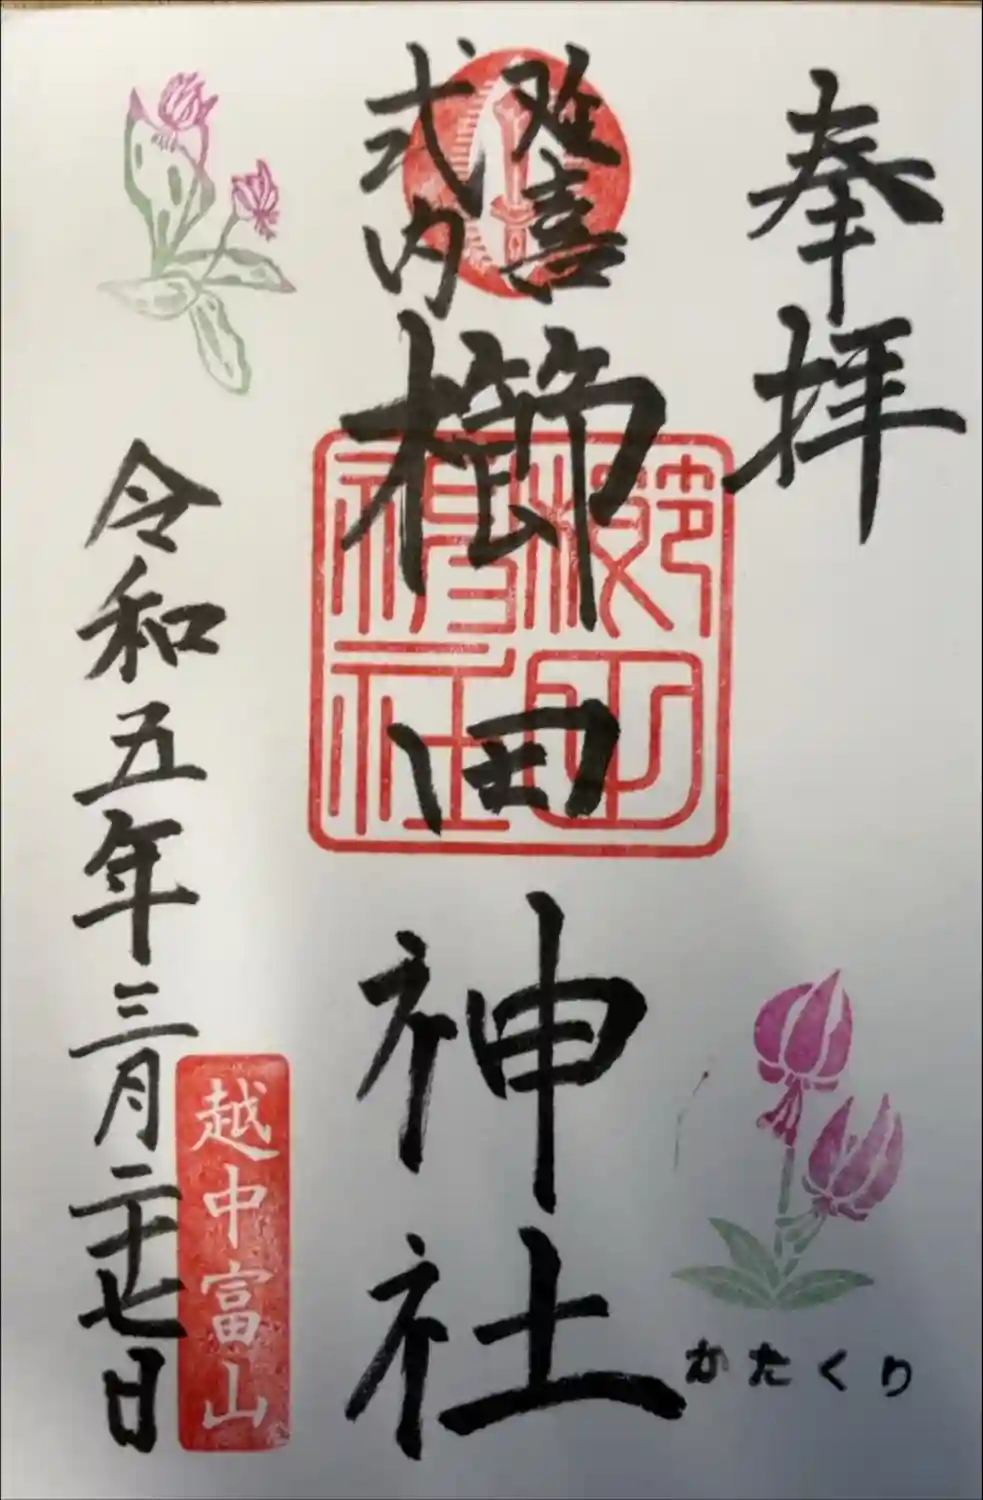 奉拝
延喜
式内
櫛田神社
櫛田
神社
かたくり
越中富山
令和五年三月二十七日